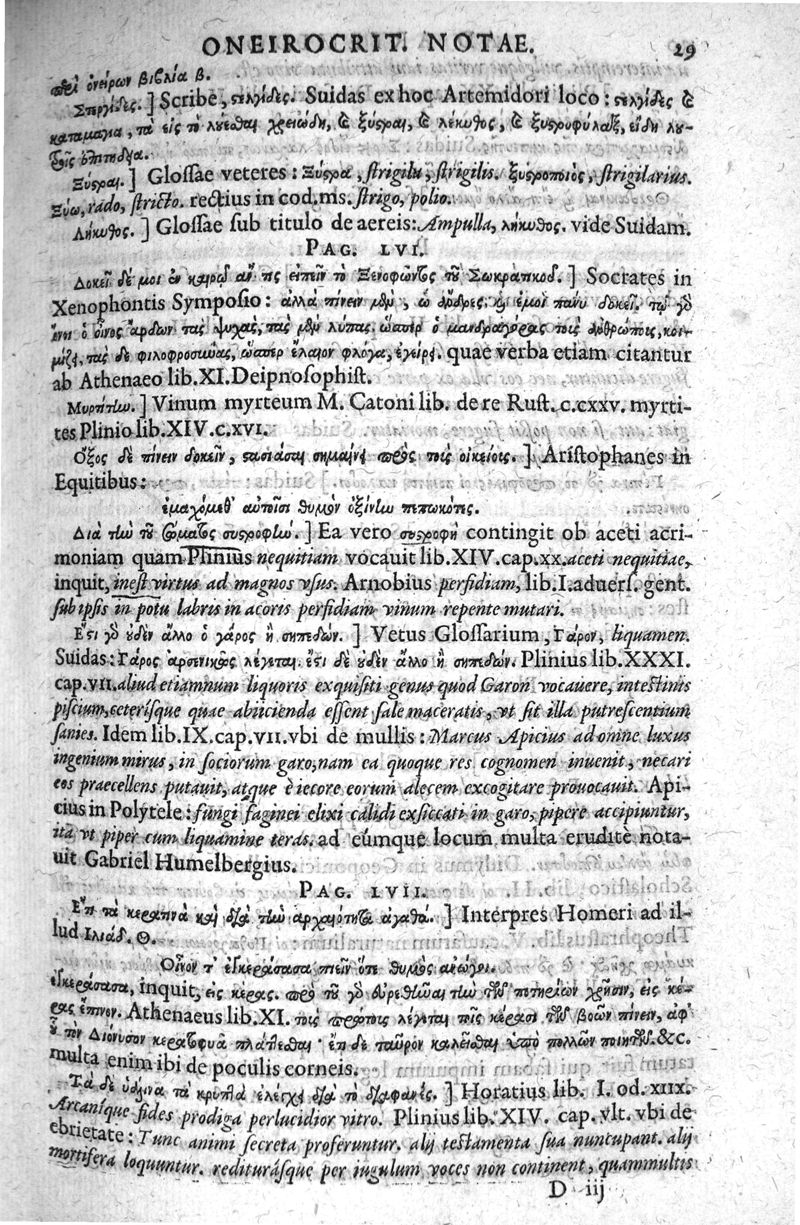 ONEIROCRIT. NOTAE. 29
περὶ ὀνείρων βιβλία β.
Στεργίδες.] Scribe, στελγίδες. Suidas ex hoc Artemidori loco: στελγίδες &
καταμαγια, τὰ εἰς τὸ λούεσθαι χρειώδη, & ξύστραι, & λέκυθος, & ξυστροφύλαξ, εἴδη λου-
τροῖς ἐπιτήδεια.
Ξύστραι.] Glossae veteres: Ξύστρα, strigilu, strigilis. ξυστροποιὸς, strigilarius.
Ξύω, rado, stricto. rectius in cod. ms. strigo, polio.
Λήκυθος.] Glossae sub titulo de aereis: Ampulla, λήκυθος. vide Suidam.
PAG. LVI.
Δοκεῖ δέ μοι ἐν καιρῷ ἄν τις εἰπεῖν τὸ Ξενοφῶντος τοῦ Σωκρατικοῦ.] Socrates in
Xenophontis Symposio: ἀλλὰ πίνειν μὲν, ὦ ἄνδρες, καὶ ἐμοὶ πάνυ δοκεῖ. τῷ γὸ
ὄντι ὁ οἶνος ἄρδων τὰς ψυχὰς, τὰς μὲν λύπας, ὥσπερ ὁ μανδραγόρας τοὺς ἀνθρώπους, κοι-
μίζει, τὰς δὲ φιλοφροσύνας, ὥσπερ ἔλαιον φλόγα, ἐγείρει. quae verba etiam citantur
ab Athenaeo lib. XI. Deipnosophist.
Μυρτίτην.] Vinum myrteum M. Catoni lib. de re Rust. c. cxxv. myrti-
tes Plinio lib. XIV. c. XVI.
Ὄξος δὲ πίνειν δοκεῖν, στασιάσαι σημαίνει πρὸς τοὺς οἰκείους.] Aristophanes in
Equitibus:
ἐμαχόμεθ' αὐτοῖσι θυμὸν ὀξίνην πεπωκότες.
Διὰ τὴν τοῦ στόματος συστροφήν.] Ea vero συστροφὴ contingit ob aceti acri-
moniam quam Plinius nequitiam vocauit lib. XIV. cap. xx. aceti nequitiae,
inquit, inest virtus ad magnos vsus. Arnobius perfidiam, lib. I. aduers. gent.
sub ipsis in potu labris in acoris perfidiam vinum repente mutari.
Ἔστι γὸ οὐδὲν ἄλλο ὁ γάρος ἢ σηπεδών.] Vetus Glossarium, Γάρον, liquamen.
Suidas: Γάρος ἀρσενικῶς λέγεται. ἔστι δὲ οὐδὲν ἄλλο ἢ σηπεδών. Plinius lib. XXXI.
cap. VII. aliud etiamnum liquoris exquisiti genus quod Garon vocauere, intestinis
piscium, ceterísque quae abiicienda essent sale maceratis, vt sit illa putrescentium
sanies. Idem lib. IX. cap. VII. vbi de mullis: Marcus Apicius ad omne luxus
ingenium mirus, in sociorum garo, nam ea quoque res cognomen inuenit, necari
eos praecellens putauit, atque è iecore eorum alecem excogitare prouocauit. Api-
cius in Polytele: fungi faginei elixi calidi exsiccati in garo, pipere accipiuntur,
ita vt piper cum liquamine teras. ad eúmque locum multa eruditè nota-
uit Gabriel Humelbergius.
PAG. LVII.
Ἔπι τὰ κεράτινα καὶ διὰ τὴν ἀρχαιότητα ἀγαθά.] Interpres Homeri ad il-
lud Ιλιάδ. Θ.
Οἶνον τ' ἐγκεράσασα πιεῖν ὅτε θυμὸς ἀνώγοι.
ἐγκεράσασα, inquit, εἰς κέρας. πρὸ τοῦ γὸ εὑρεθῆναι τὴν τῶν ποτηρίων χρῆσιν, εἰς κέ-
ρας ἔπινον. Athenaeus lib. XI. τοὺς πρώτους λέγεται τοῖς κέρασι τῶν βοῶν πίνειν, ἀφ'
οὗ τὸν Διόνυσον κερατοφυᾶ πλάττεσθαι· ἔτι δὲ ταῦρον καλεῖσθαι ὑπὸ πολλῶν ποιητῶν. &c.
multa enim ibi de poculis corneis.
Τὰ δὲ ὑάλινα τὰ κρυπτὰ ἐλέγχει διὰ τὸ διαφανές.] Horatius lib. I. od. XIIX.
Arcaníque fides prodiga perlucidior vitro. Plinius lib. XIV. cap. vlt. vbi de
ebrietate: Tunc animi secreta proferuntur. alij testamenta sua nuncupant. alij
mortifera loquuntur. rediturásque per iugulum voces non continent, quammultis
D iij